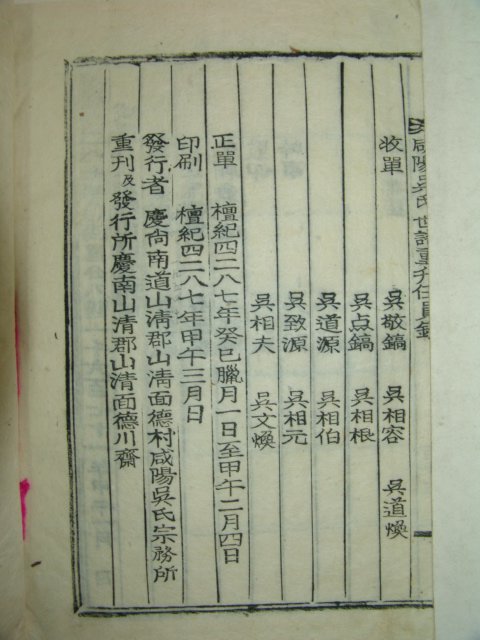 咸陽吳氏世譜重刊任員錄
收單 吳敬鎬 吳相容 吳道煥
吳点鎬 吳相根
吳道源 吳相伯
吳致源 吳相元
吳相夫 吳文煥
正單 檀紀四二八七年癸巳臘月一日至甲午二月四日
印刷 檀紀四二八七年甲午三月日
發行者 慶尙南道山淸郡山淸面德村咸陽吳氏宗務所
重刊及發行所慶南山淸郡山淸面德川齋